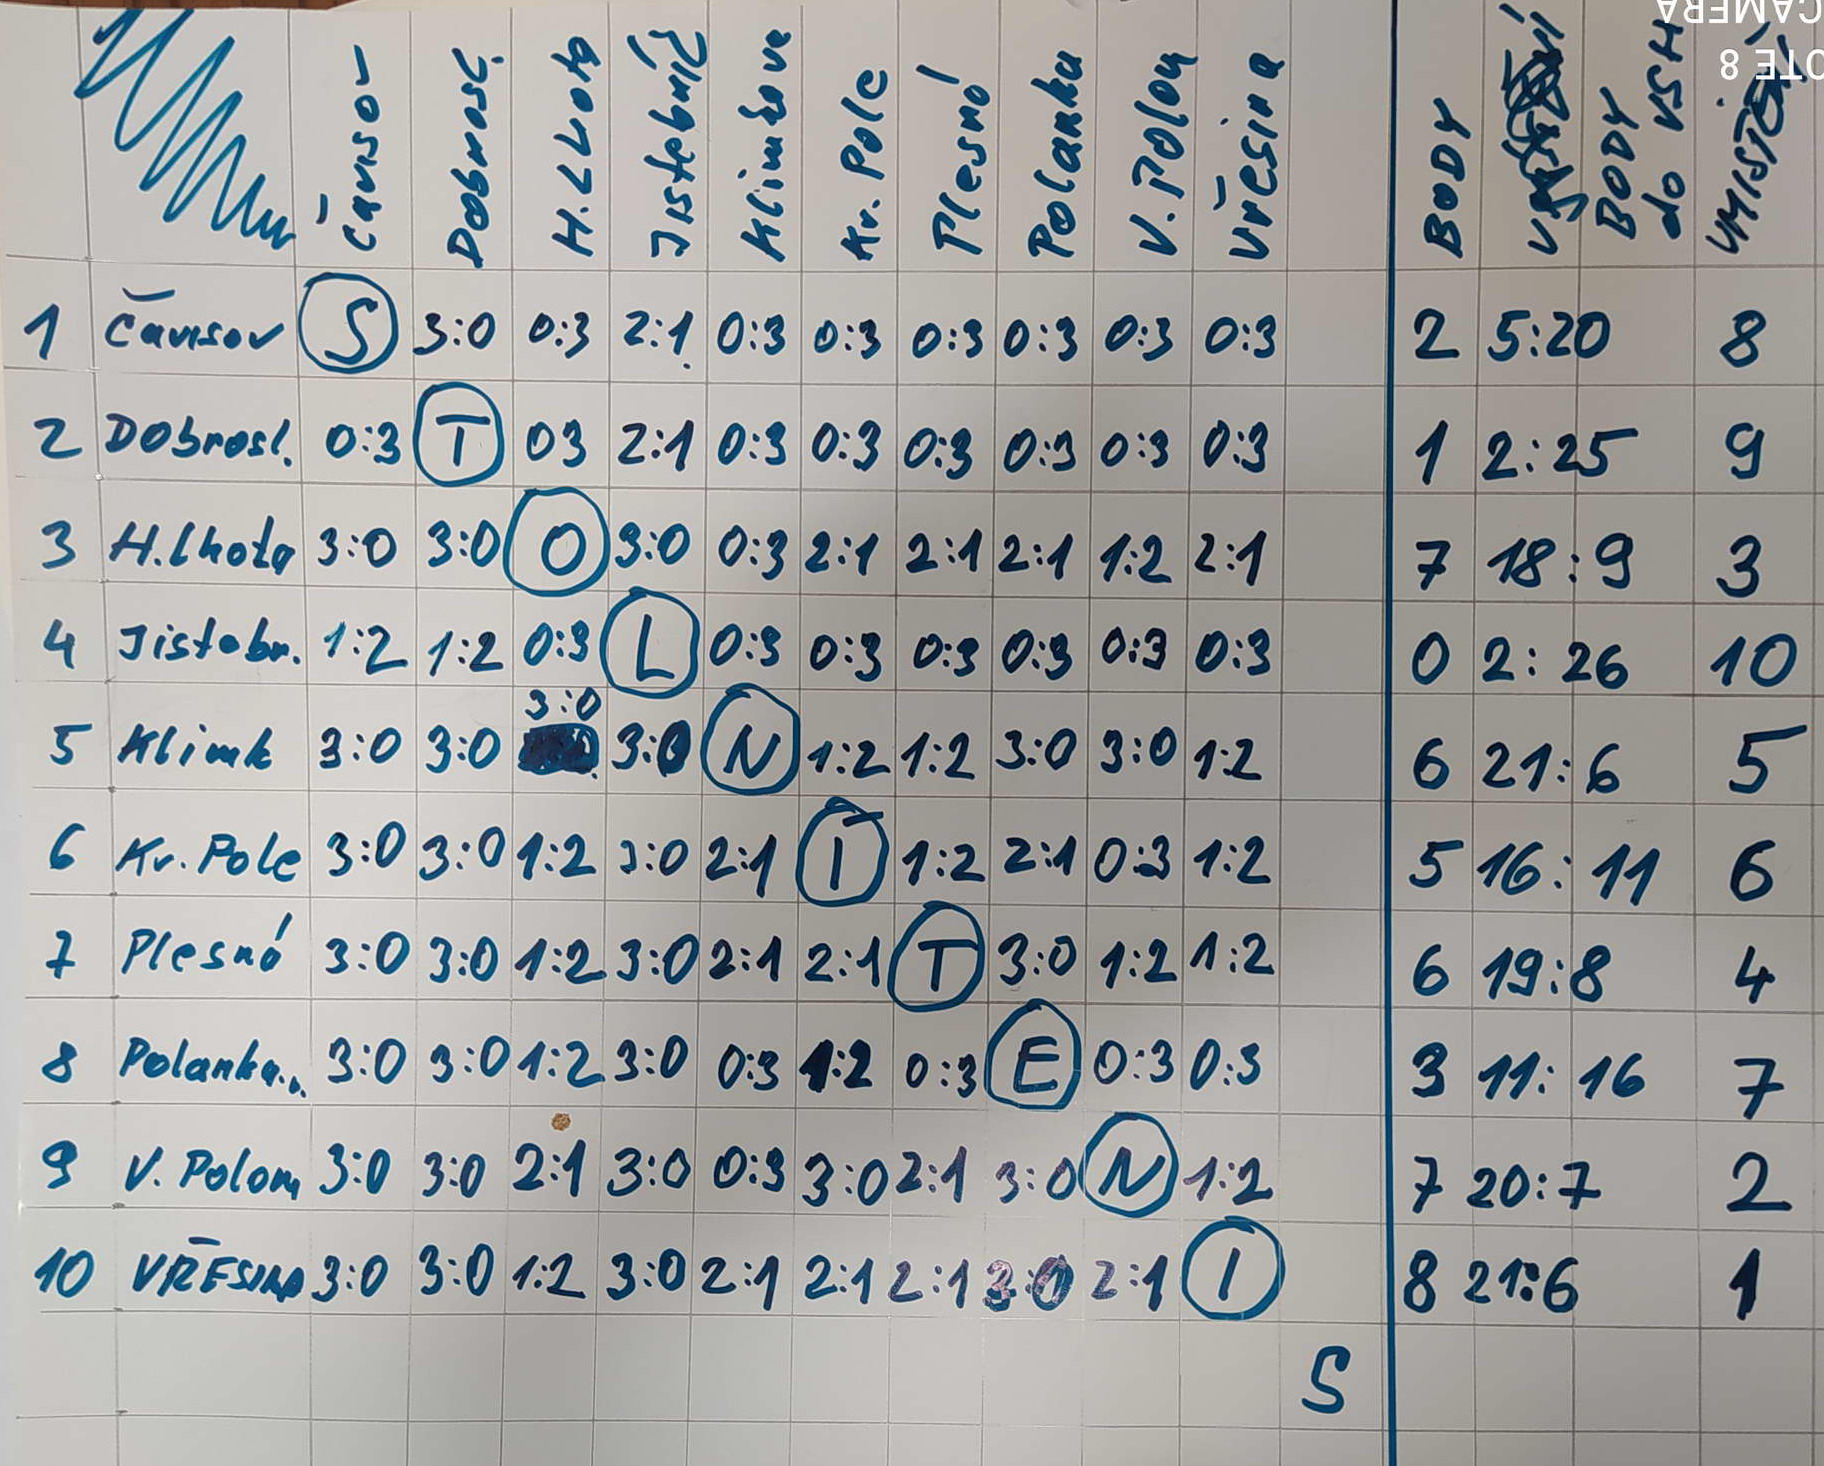 Čavisov Dobrosl. H.Lhota Jistebník Klimkov Kr. Pole Plesná Polanka V. Polom Vřesina BODY BODY do VSH UMÍSTĚNÍ
1 Čavisov S 3:0 0:3 2:1 0:3 0:3 0:3 0:3 0:3 0:3 2 5:20 8
2 Dobrosl. 0:3 T 03 2:1 0:3 0:3 0:3 0:3 0:3 0:3 1 2:25 9
3 H.Lhota 3:0 3:0 O 3:0 0:3 2:1 2:1 2:1 1:2 2:1 7 18:9 3
4 Jistebn. 1:2 1:2 0:3 L 0:3 0:3 0:3 0:3 0:3 0:3 0 2:26 10
5 Klimk 3:0 3:0 3:0 3:0 N 1:2 1:2 3:0 3:0 1:2 6 21:6 5
6 Kr. Pole 3:0 3:0 1:2 3:0 2:1 I 1:2 2:1 0:3 1:2 5 16:11 6
7 Plesná 3:0 3:0 1:2 3:0 2:1 2:1 T 3:0 1:2 1:2 6 19:8 4
8 Polanka.. 3:0 3:0 1:2 3:0 0:3 1:2 0:3 E 0:3 0:3 3 11:16 7
9 V. Polom 3:0 3:0 2:1 3:0 0:3 3:0 2:1 3:0 N 1:2 7 20:7 2
10 VŘESINA 3:0 3:0 1:2 3:0 2:1 2:1 2:1 3:0 2:1 I 8 21:6 1
S
CAMERA
OTE 8